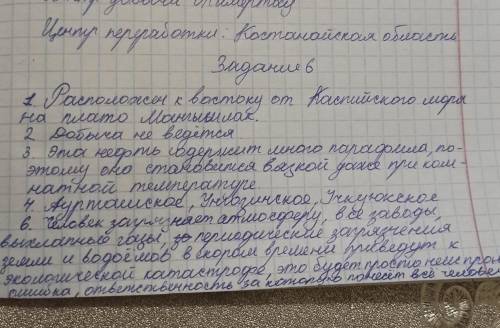 Центр переработки: Костанайская область
Задание 6
1. Расположен к востоку от Каспийского моря
на плато Мангышлак.
2. Добыча не ведётся
3. Эта нефть содержит много парафина, по-
этому она становится вязкой даже при ком-
натной температуре
4.
6. Человек загрязняет атмосферу, все заводы,
выхлапные газы, периодические загрязнения
земли и водоёмов в скором времени приведут к
экологической катастрофе, это будет просто
ошибка, ответственность за которую понесёт всё